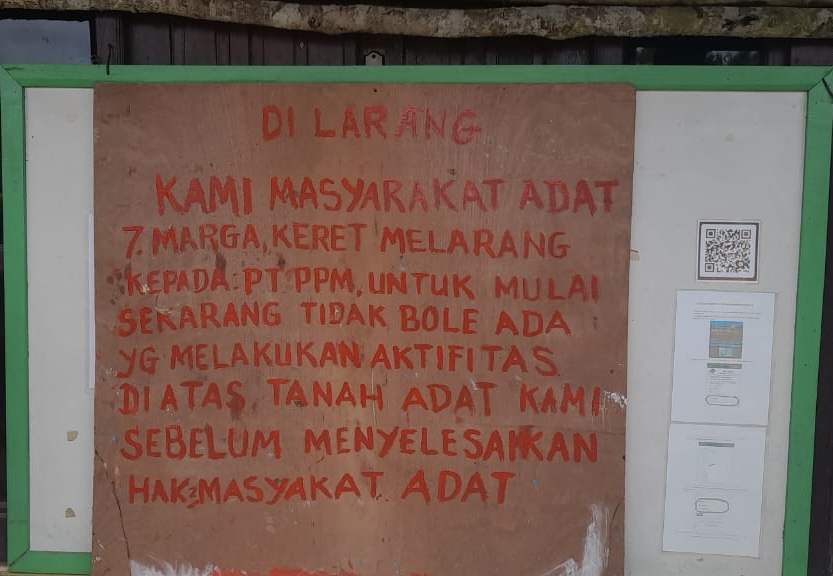 DI LARANG
KAMI MASYARAKAT ADAT
7. MARGA, KERET MELARANG
KEPADA: PT PPM, UNTUK MULAI
SEKARANG TIDAK BOLE ADA
YG MELAKUKAN AKTIFITAS
DI ATAS TANAH ADAT KAMI
SEBELUM MENYELESAIKAN
HAK2 MASYAKAT ADAT